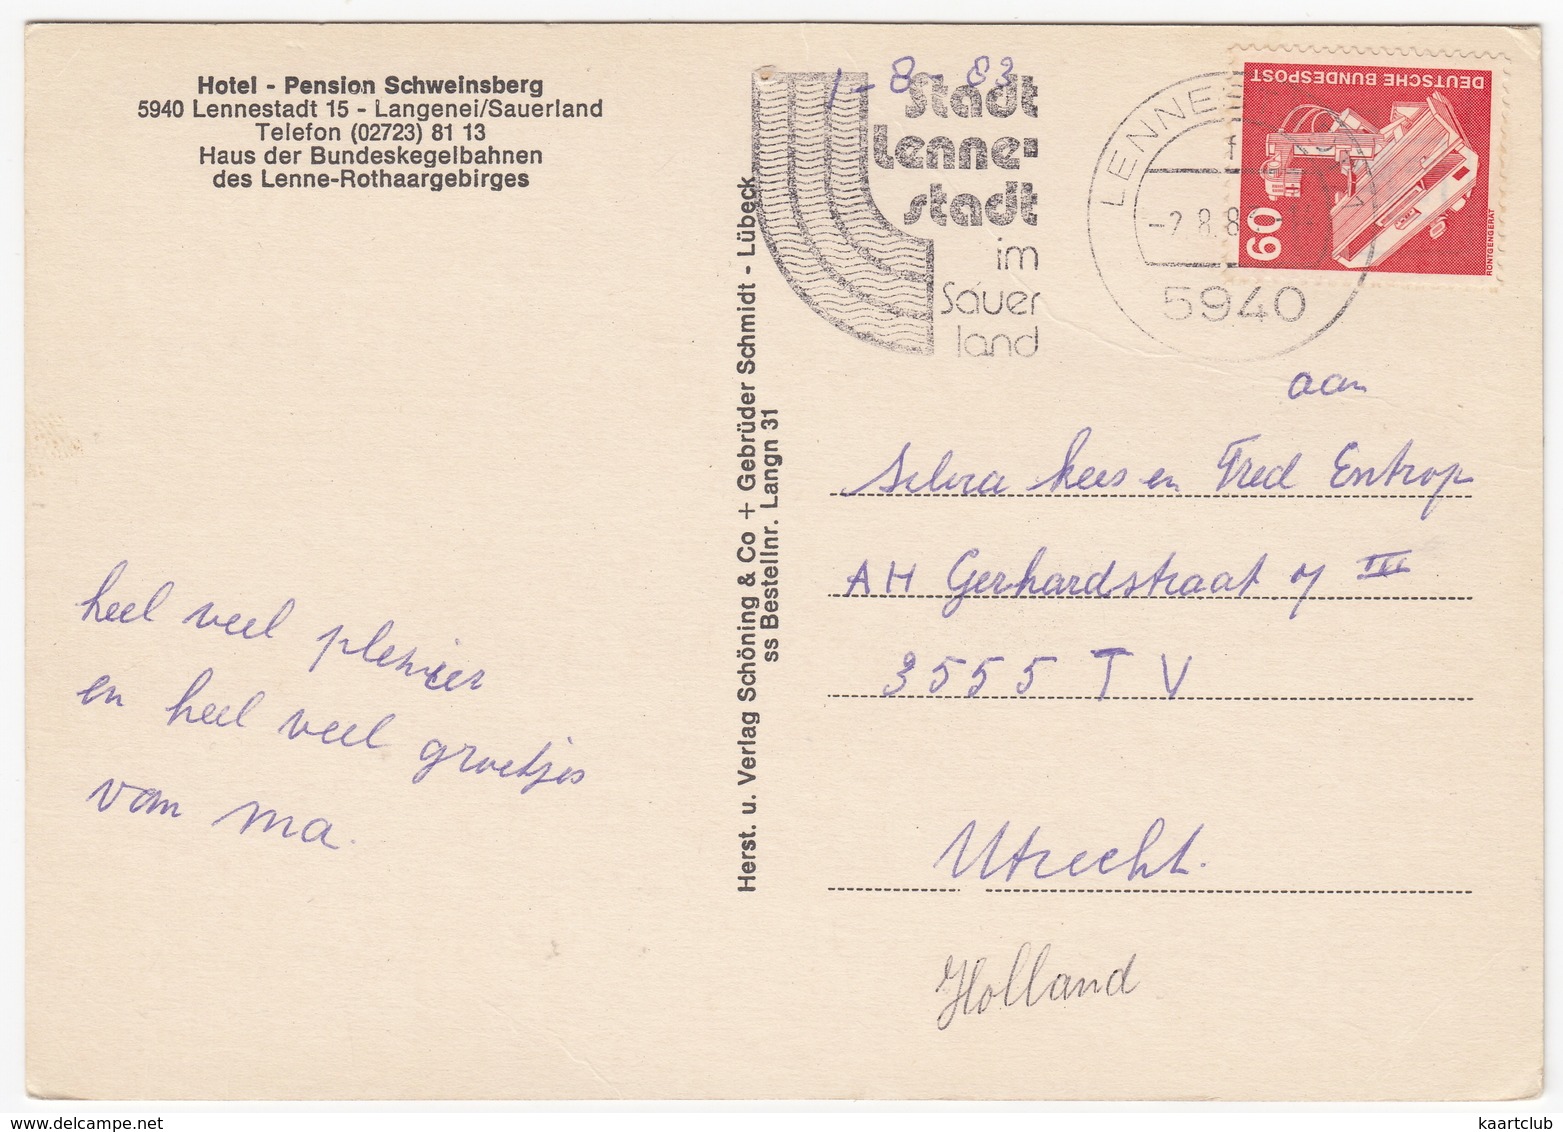 Hotel - Pension Schweinsberg
5940 Lennestadt 15 - Langenei/Sauerland
Telefon (02723) 81 13
Haus der Bundeskegelbahnen
des Lenne-Rothaargebirges
1-8 83
Stadt
Lenne-
stadt
im
Sauer
land
LENNES
f
-2.8.8
5940
DEUTSCHE BUNDESPOST
60
RÖNTGENGERÄT
Herst. u. Verlag Schöning & Co + Gebrüder Schmidt - Lübeck
ss Bestellnr. Langn 31
heel veel plezier
en heel veel groetjes
van ma.
aan
Silvia Kees en Fred Entrop
AH Gerhardstraat 7 III
3555 TV
Utrecht.
Holland
kaartclub